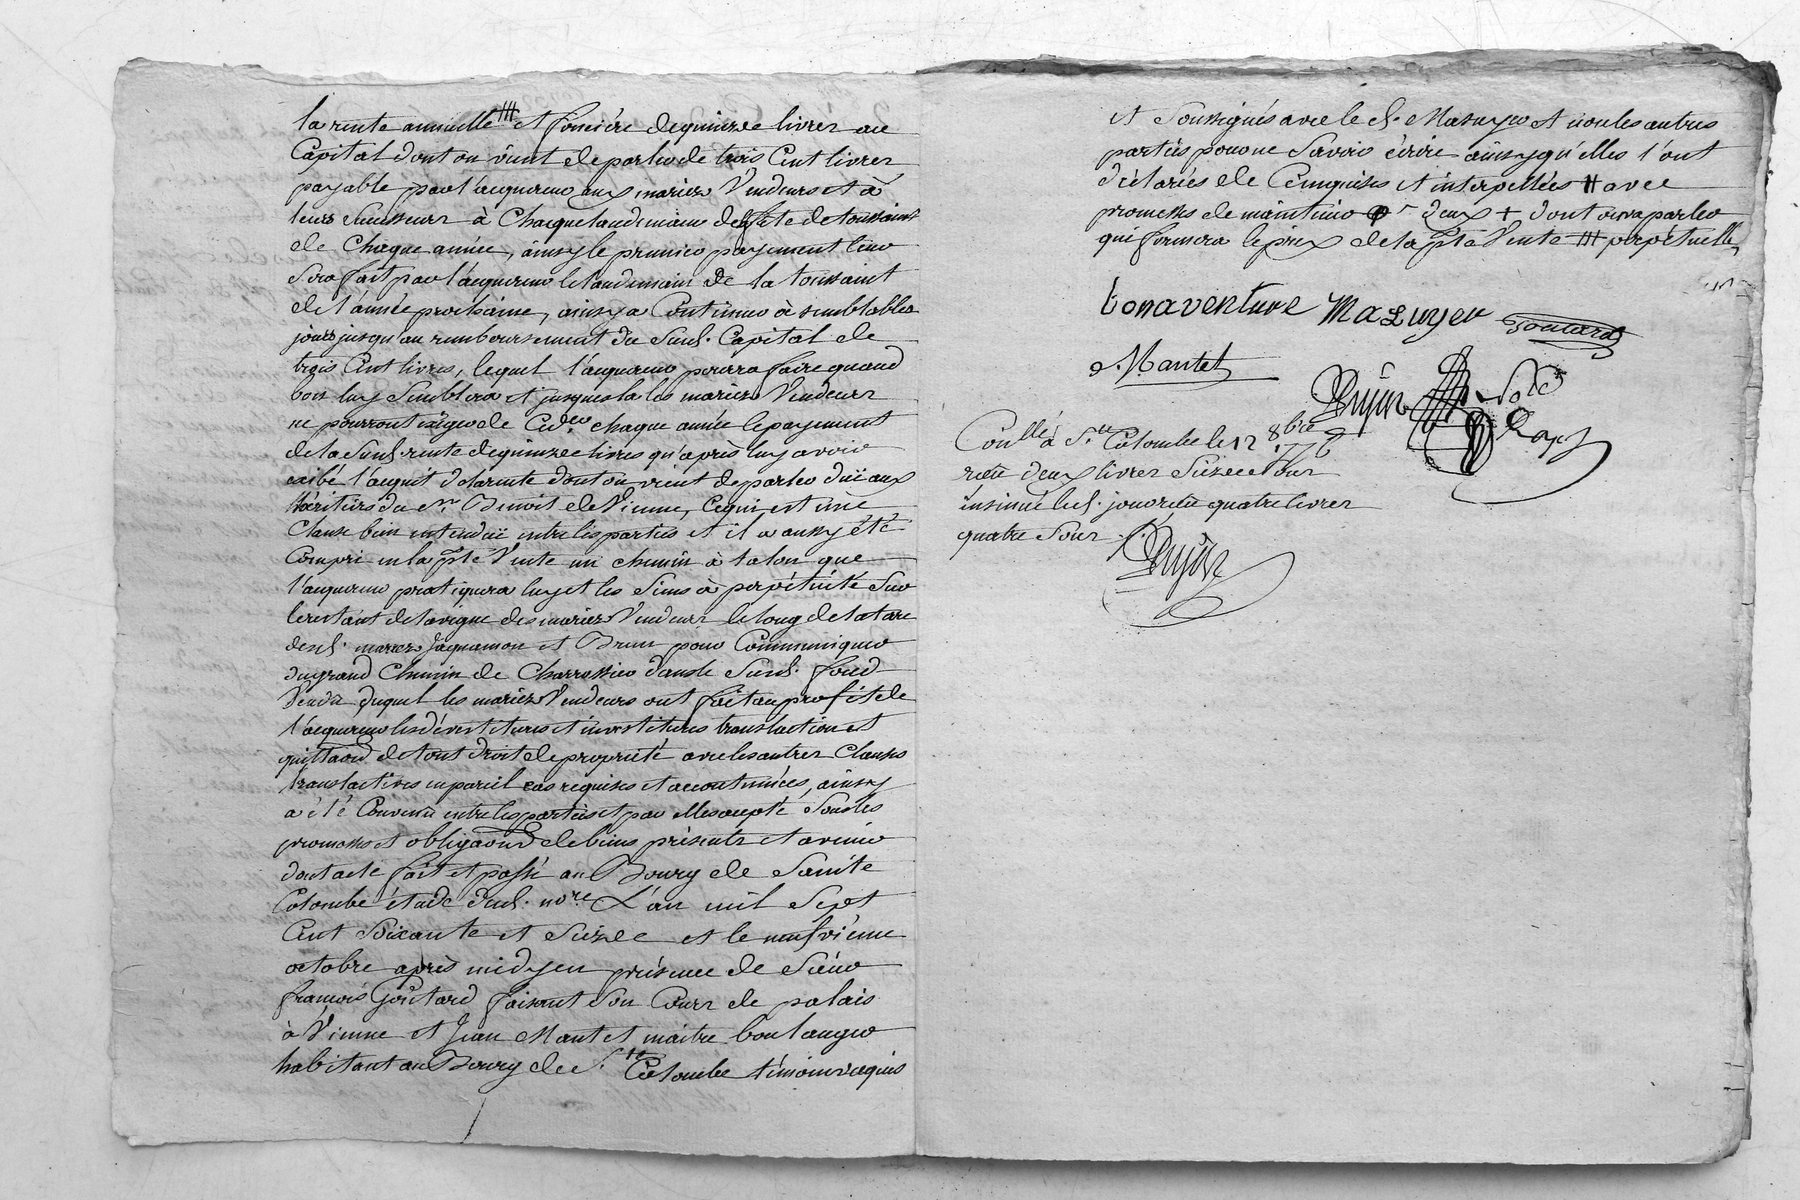 la rente annuelle # et fonciére dequinzee livres au
Capital dont on vient deparler de trois Cent livres
payable par l'acquereur aux mariez Vendeurs et à
leurs Successeurs à Chaque landemain defete detoussaint
de Chaque année, ainsy le premier payement leur
Sera fait par l'acquereur le landemain de la toussaint
de l'année prochaine, ainsy a Continuer à semblables
jours jusqu'au remboursement du Susd. Capital de
trois Cent livres, lequel l'acquereur pourra faire quand
bon luy Semblera et jusques la les mariez Vendeurs
ne pourront exiger de chaque année lepayement
de la Susd. rente dequinzee livres qu'après luy avoir
exibé l'acquit delarente dont on vient deparler düe aux
héritiers du Sr. Benoit de Vienne, Cequi est une
Clause bien entendüe entre lesparties et il a aussy été
Compri en la pnte Vente un chemin à talon que
l'acquereur pratiquera luy et les Siens à perpétuité Sur
lerestant delavigne des mariez Vendeurs le long de
desd. mariez Jaquemon et Brun pour Communiquer
dugrand Chemin de Charrossier dansle Susd. fond
Vendu duquel les mariez Vendeurs ont fait au profit de
l'acquereur les dévestitures et investitures translation et
quittaõn de tout droit de proprieté avec les autres Clauses
translatives en pareil cas requises et accoutumées, ainsy
a été Convenu entre les parties et par elles accepté Sous les
promesses et obligaõns de biens présents et avenir
dont acte fait et passé au Bourg de Sainte
Colombe étude dud. nore L'an mil Sept
Cent Soixante et Seizee et le neufvième
octobre après midy en présence de Sieur
françois Goutard faisant Son Cours de palais
à Vienne et Jean Mantet maitre boulanger
habitant au Bourg de Ste Colombe témoins requis
et Soussignés avec le d. Mazuyer et non les autres
parties pour ne Savoir écrire ainsy qu'elles l'ont
déclarées de Ce enquises et interpellées # avec
promesses de maintenir deux + dont on va parler
qui formera le prix de la pnte Vente # perpétuelle
bonaventure Mazuyer Goutard
Mantet
Dujas
Conlle à Ste Colombe le 12 8bre 1776
reçu deux livres Seizee Sous
insinué led. jour reçu quatre livres
quatre Sous
Dujas